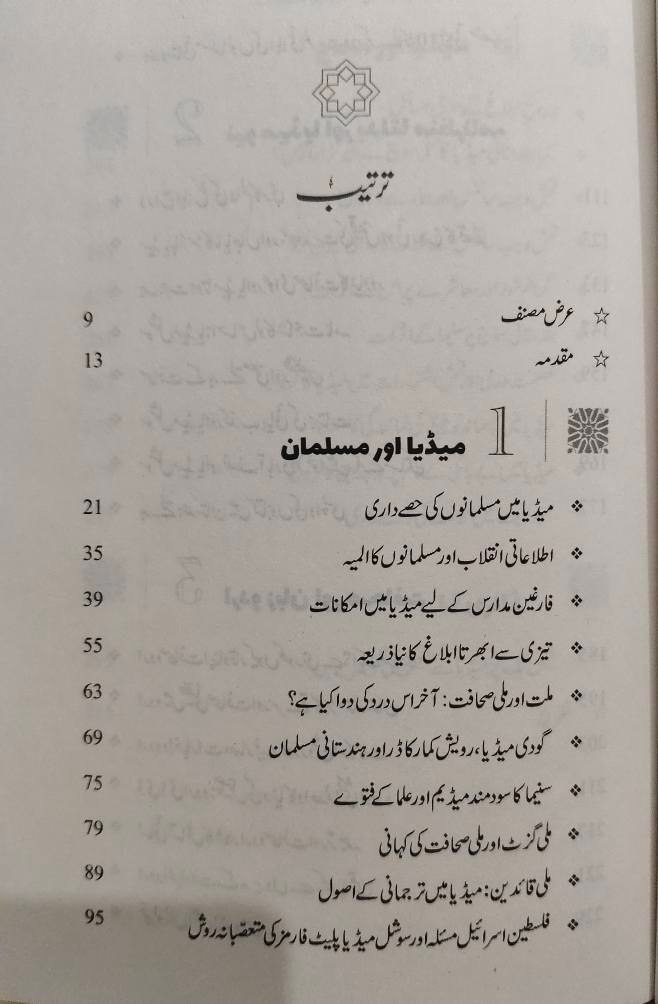 ترتیب
☆ عرض مصنف 9
☆ مقدمہ 13
1 میڈیا اور مسلمان
❖ میڈیا میں مسلمانوں کی حصے داری 21
❖ اطلاعاتی انقلاب اور مسلمانوں کا المیہ 35
❖ فارغین مدارس کے لیے میڈیا میں امکانات 39
❖ تیزی سے ابھرتا ابلاغ کا نیا ذریعہ 55
❖ ملت اور ملی صحافت: آخر اس درد کی دوا کیا ہے؟ 63
❖ گودی میڈیا، رویش کمار کا ڈر اور ہندستانی مسلمان 69
❖ سنیما کا سودمند میڈیم اور علما کے فتوے 75
❖ ملی گزٹ اور ملی صحافت کی کہانی 79
❖ ملی قائدین: میڈیا میں ترجمانی کے اصول 89
❖ فلسطین اسرائیل مسئلہ اور سوشل میڈیا پلیٹ فارمز کی متعصبانہ روش 95